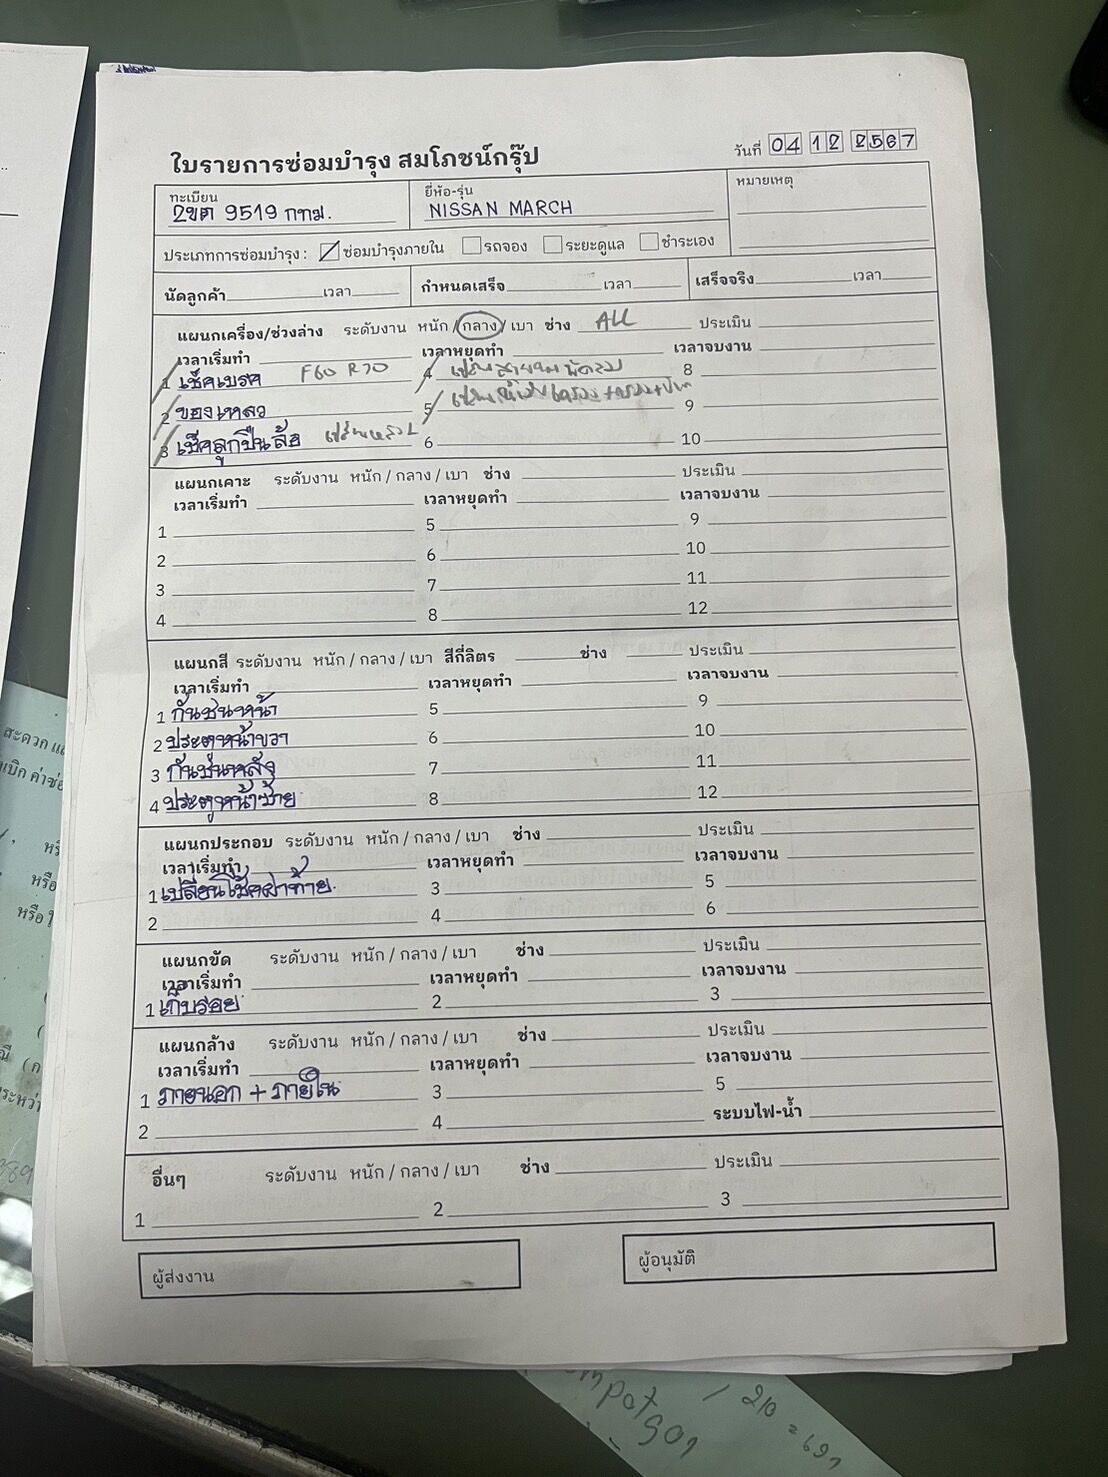 ใบรายการซ่อมบำรุง สมโภชน์กรุ๊ป
วันที่ 04 12 2567
ทะเบียน 2ขต 9519 กทม.
ยี่ห้อ-รุ่น NISSAN MARCH
หมายเหตุ
ประเภทการซ่อมบำรุง : ซ่อมบำรุงภายใน รถจอง ระยะดูแล ชำระเอง
นัดลูกค้า เวลา กำหนดเสร็จ เวลา เสร็จจริง เวลา
แผนกเครื่อง/ช่วงล่าง ระดับงาน หนัก / กลาง / เบา ช่าง ALL ประเมิน
เวลาเริ่มทำ เวลาหยุดทำ เวลาจบงาน
1 เช็คเบรค F60 R70 4 8
2 ของเหลว 5 9
3 เช็คลูกปืนล้อ 6 10
แผนกเคาะ ระดับงาน หนัก / กลาง / เบา ช่าง ประเมิน
เวลาเริ่มทำ เวลาหยุดทำ เวลาจบงาน
1 5 9
2 6 10
3 7 11
4 8 12
แผนกสี ระดับงาน หนัก / กลาง / เบา สีกี่ลิตร ช่าง ประเมิน
เวลาเริ่มทำ เวลาหยุดทำ เวลาจบงาน
1 กันชนหน้า 5 9
2 ประตูหน้าขวา 6 10
3 กันชนหลัง 7 11
4 ประตูหน้าซ้าย 8 12
แผนกประกอบ ระดับงาน หนัก / กลาง / เบา ช่าง ประเมิน
เวลาเริ่มทำ เวลาหยุดทำ เวลาจบงาน
1 เปลี่ยนโช้คฝาท้าย 3 5
2 4 6
แผนกขัด ระดับงาน หนัก / กลาง / เบา ช่าง ประเมิน
เวลาเริ่มทำ เวลาหยุดทำ เวลาจบงาน
1 เก็บรอย 2 3
แผนกล้าง ระดับงาน หนัก / กลาง / เบา ช่าง ประเมิน
เวลาเริ่มทำ เวลาหยุดทำ เวลาจบงาน
1 ภายนอก + ภายใน 3 5
2 4 ระบบไฟ-น้ำ
อื่นๆ ระดับงาน หนัก / กลาง / เบา ช่าง ประเมิน
1 2 3
ผู้ส่งงาน ผู้อนุมัติ